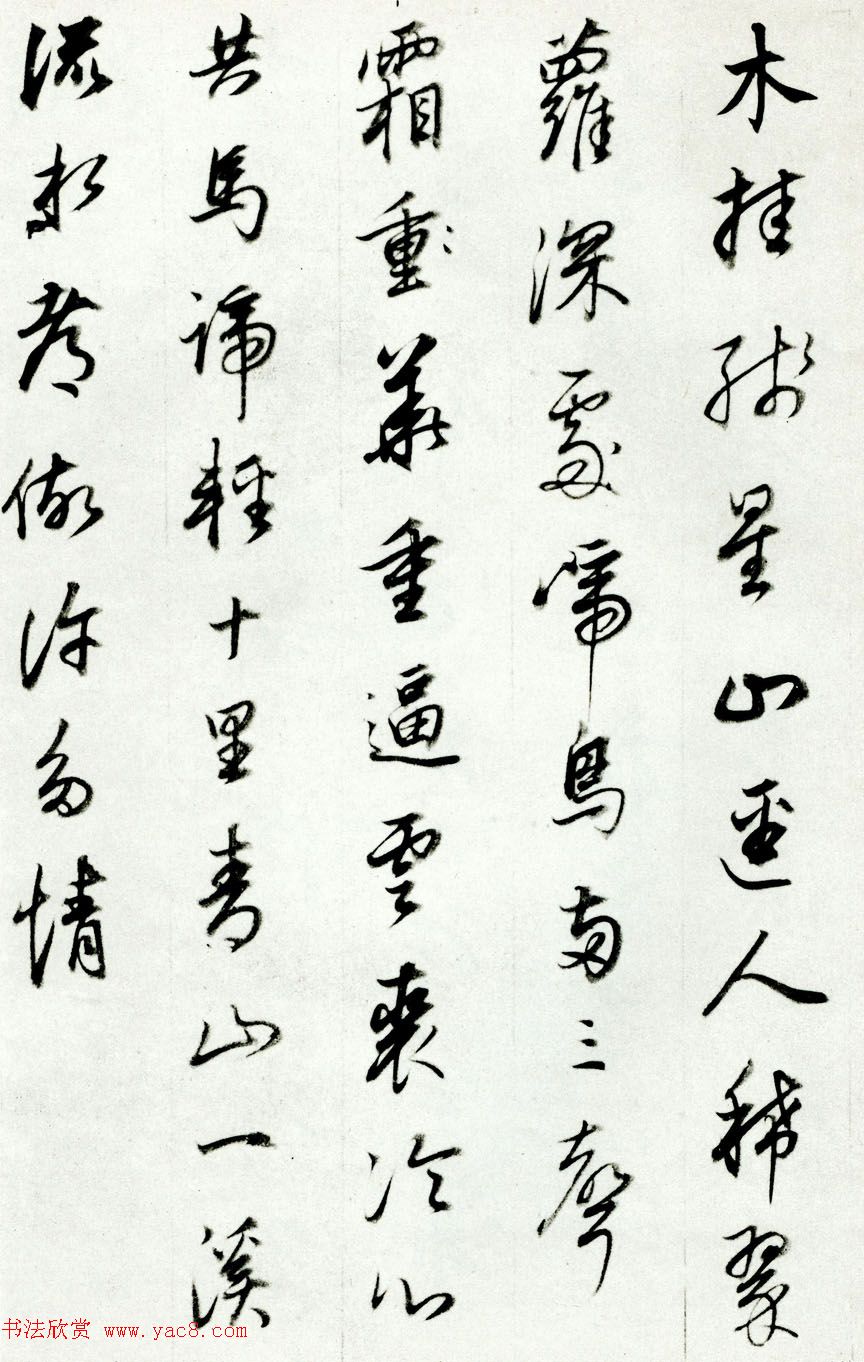 木挂殘星山逕人稀翠
蘿深處啼鳥兩三聲
霜重華重逼雲裘冷心
共馬蹄輕十里青山一溪
流水都做許多情
书法欣赏 www.yac8.com